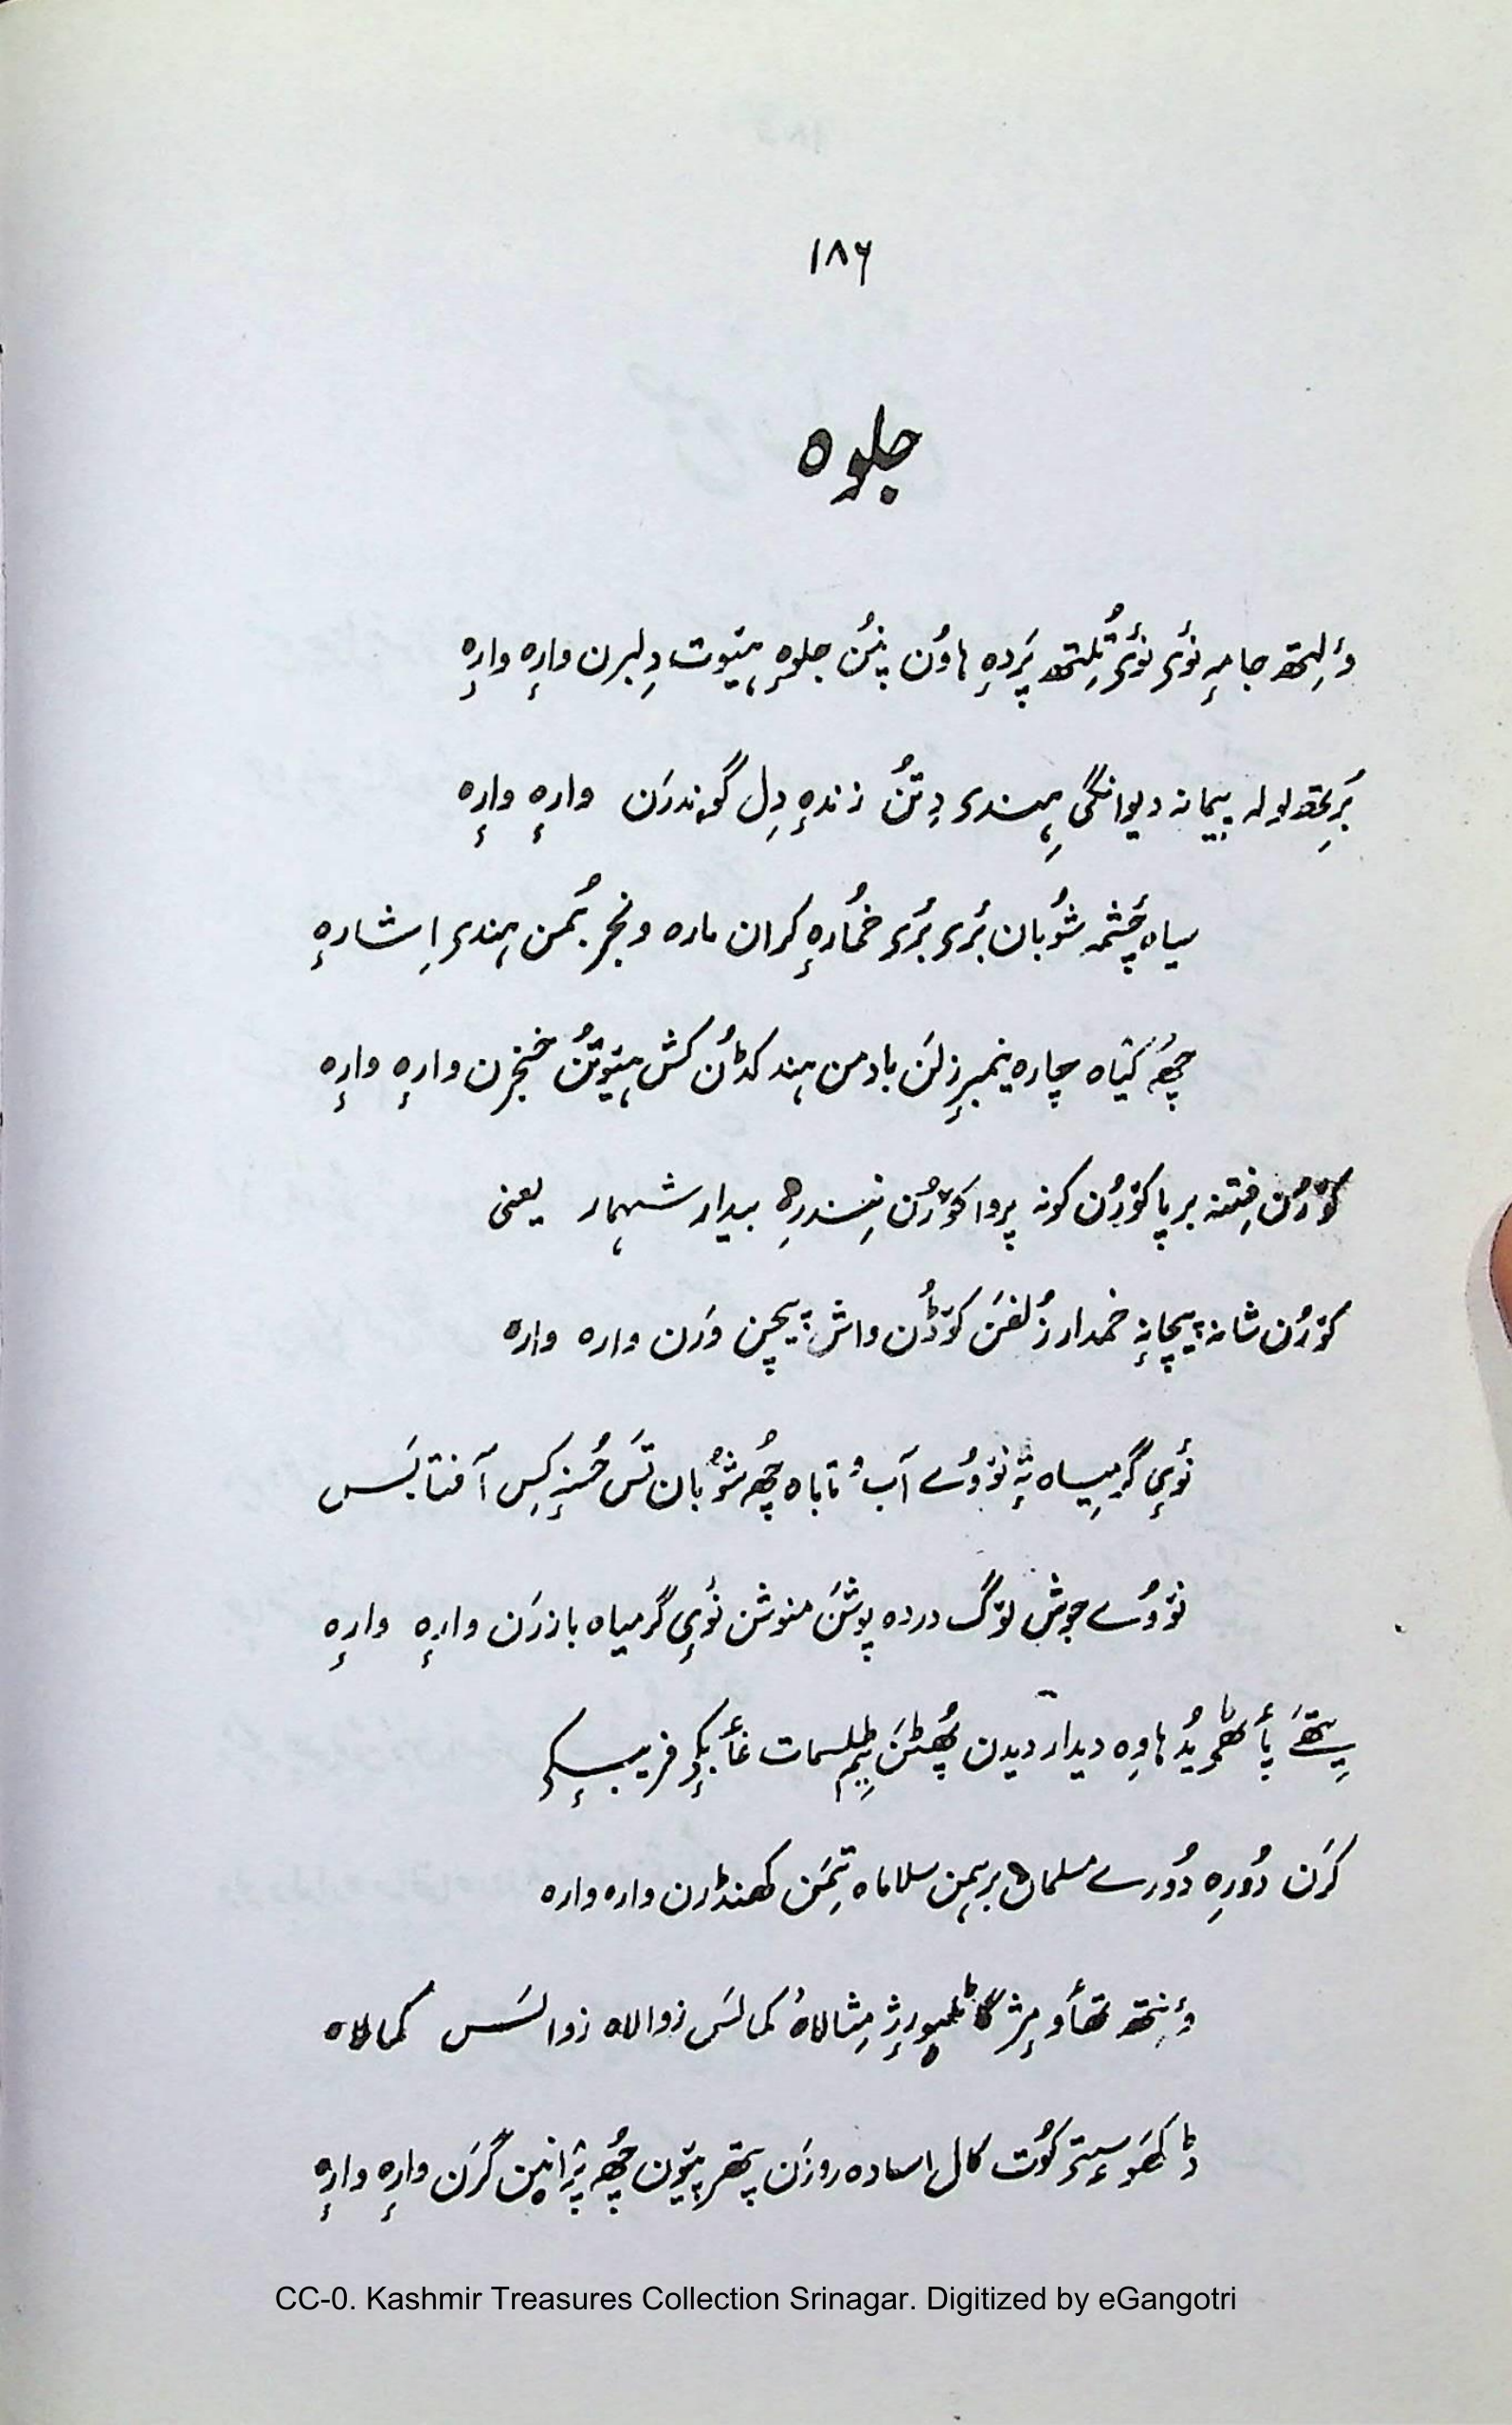 ۱۸۶
جلوہ
وٲلِتھ جامہٕ نٔوۍ نٔوۍ تُلِتھ پَردہٕ ہاوُن پنُن جلوہٕ ہیٚوت دِلبرن وارہٕ وارہٕ
بَرِتھ لولہ پیمانہ دیوانگی ہِندۍ دِتُن زندہٕ دِل گوٚندرَن وارہٕ وارہٕ
سیاہ چٔشمہ شوٗبان بٔرۍ بٔرۍ خُمارہٕ کران مارہ ونجر بُمن ہندۍ اِشارہٕ
چھُہ کیٚاہ چارہ ینمبرزلَن بادمن ہند کڈُن کش ہیٚوتُن خنجرن وارہٕ وارہٕ
کوٚرُن فِتنہ برپا کوٚرُن کونہ پروا کوٚرُن نِندرہِ بیدار شہمار یعنی
کوٚرُن شانہ پیچانہٕ خمدار زُلفَن کوٚڈُن واش پیچن وَرن وارہ وارہ
نٔوِی گرمیاہ تہٕ نوٚوُے آب و تاباہ چھُہ شوٗبان تَس حُسنہٕ کِس آفتابَس
نوٚوُے جوش لوٚگ دردہ پوشَن منوشن نٔوِی گرمیاہ بازرَن وارہٕ وارہٕ
یِتھَے پٲٹھۍ یُد ہاوِہ دیدار دیدن پھُٹَن یِم طِلسمات غٲبٕکۍ فریبٕکۍ
کرَن دُورِہ دُورے مسلمان برہمن سلاماہ تِمَن کھنڈرن وارہ وارہ
وٕنِتھ تھٲومٕژ گاٹلہٕ مِثالاہ کمالَس زوالاہ زوالَس کمالاہ
ڈاکھَو سیٖتۍ کوٗت کال اسادہ روزَن پتھر پیٚون چھُہ پرٛانیٚن گرَن وارہٕ وارہٕ
CC-0. Kashmir Treasures Collection Srinagar. Digitized by eGangotri